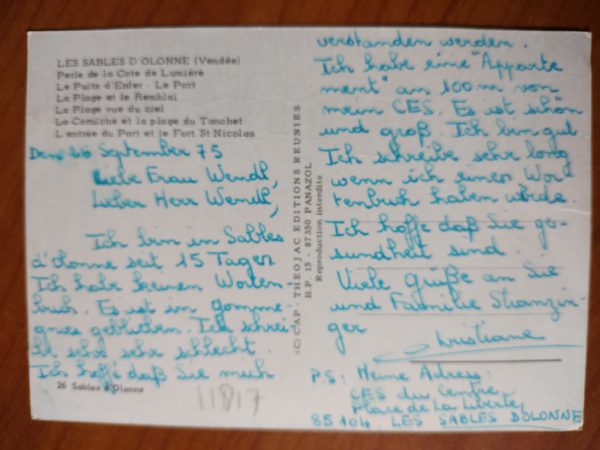 LES SABLES D OLONNE (Vendée)
Perle de la Cote de Lumière
Le Puits d'Enfer - Le Port
La Plage et le Remblai
La Plage vue du ciel
La Corniche et la plage du Tanchet
L'entrée du Port et le Fort St Nicolas
Den 26 September 75
Liebe Frau Wendt,
Lieber Herr Wendt,
Ich bin in Sables
d'olonne seit 15 Tagen
Ich habe keinen Worten
buch. Es ist in
geblieben. Ich schrei-
be sehr sehr schlecht.
Ich hoffe daß Sie mich
26 Sables d'Olonne
11817
© CAP - THEOJAC EDITIONS REUNIES
B.P. 15 - 87350 PANAZOL
Reproduction interdite
verstanden werden.
Ich habe eine "Apparte
ment" an 100 m von
mein CES. Es ist schön
und groß. Ich bin gut
Ich schreibe sehr long
wenn ich einen Wor
tenbuch haben würde.
Ich hoffe daß Sie ge-
sundheit sind.
Viele grüße an Sie
und Familie Stranzin-
ger
Christiane
P.S: Meine Adress:
CES du Centre
Place de la Liberté
85104 LES SABLES D'OLONNE